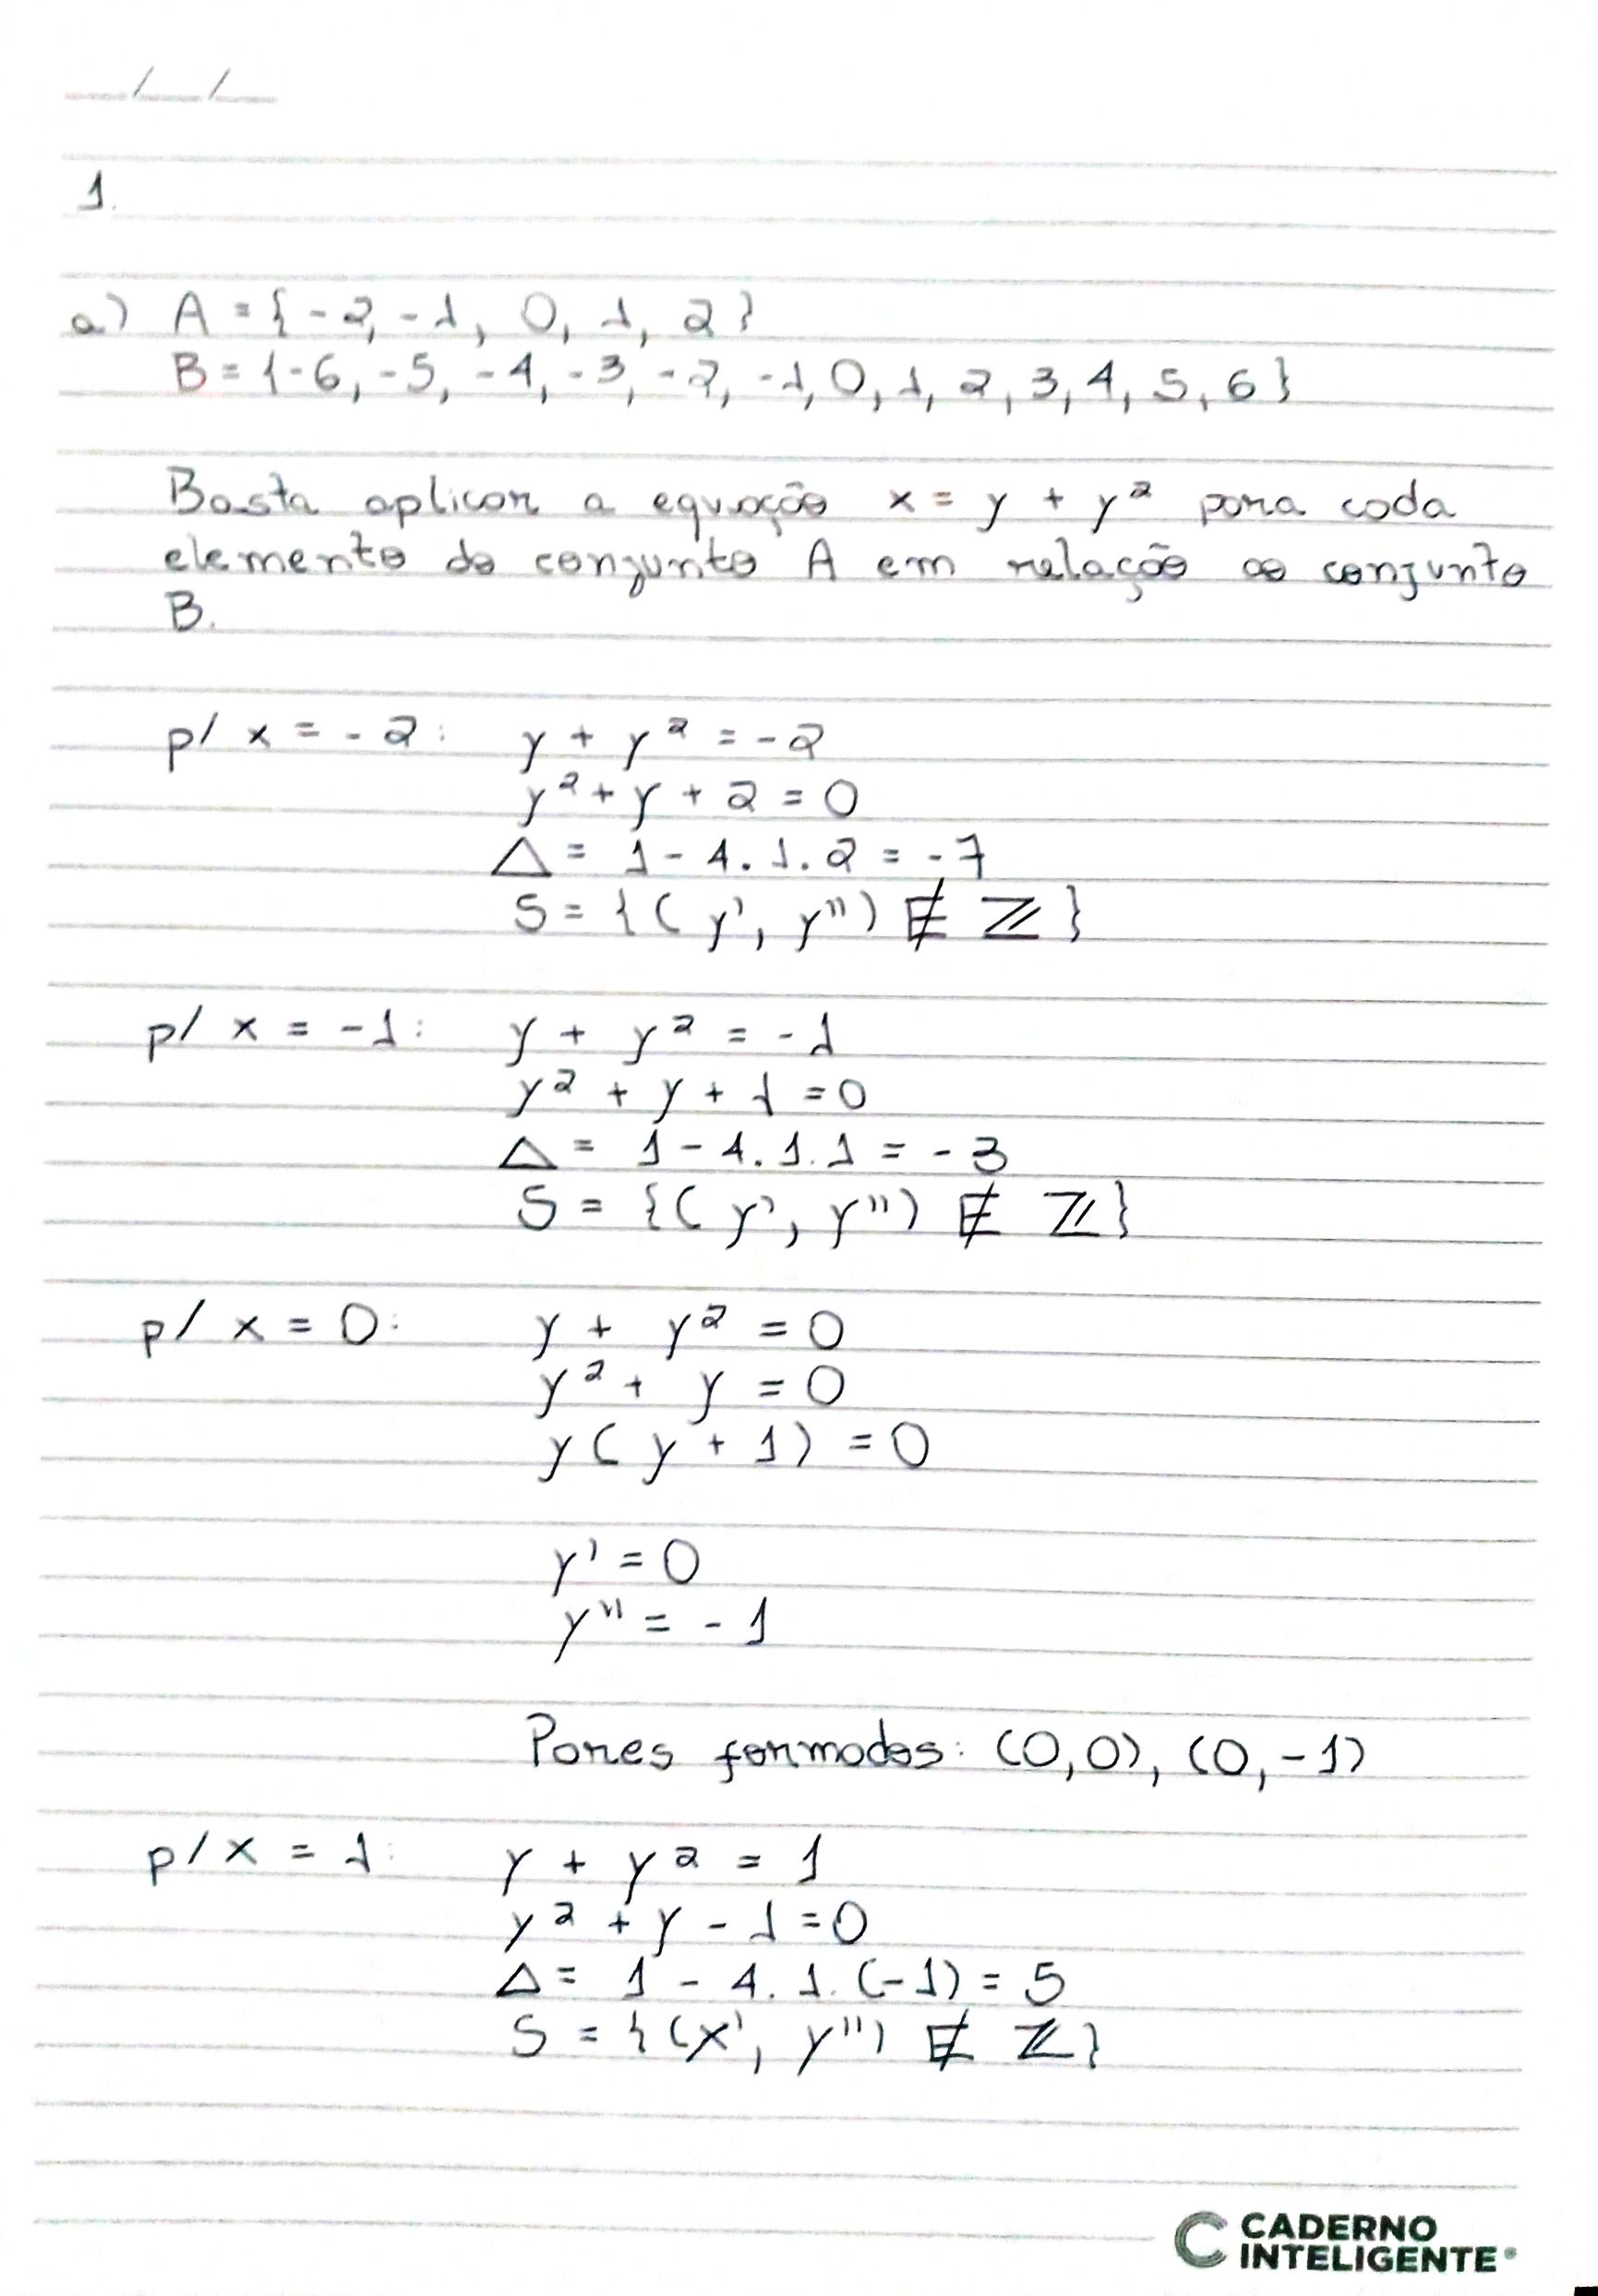 __/__/__
1.
a) A = {-2, -1, 0, 1, 2}
B = {-6, -5, -4, -3, -2, -1, 0, 1, 2, 3, 4, 5, 6}
Basta aplicar a equação x = y + y² para cada
elemento do conjunto A em relação ao conjunto
B.
p/ x = -2: y + y² = -2
y² + y + 2 = 0
Δ = 1 - 4.1.2 = -7
S = {(y', y'') ∉ ℤ}
p/ x = -1: y + y² = -1
y² + y + 1 = 0
Δ = 1 - 4.1.1 = -3
S = {(y', y'') ∉ ℤ}
p/ x = 0: y + y² = 0
y² + y = 0
y(y + 1) = 0
y' = 0
y'' = -1
Pares formados: (0,0), (0,-1)
p/ x = 1: y + y² = 1
y² + y - 1 = 0
Δ = 1 - 4.1.(-1) = 5
S = {(x', y'') ∉ ℤ}
CADERNO
INTELIGENTE